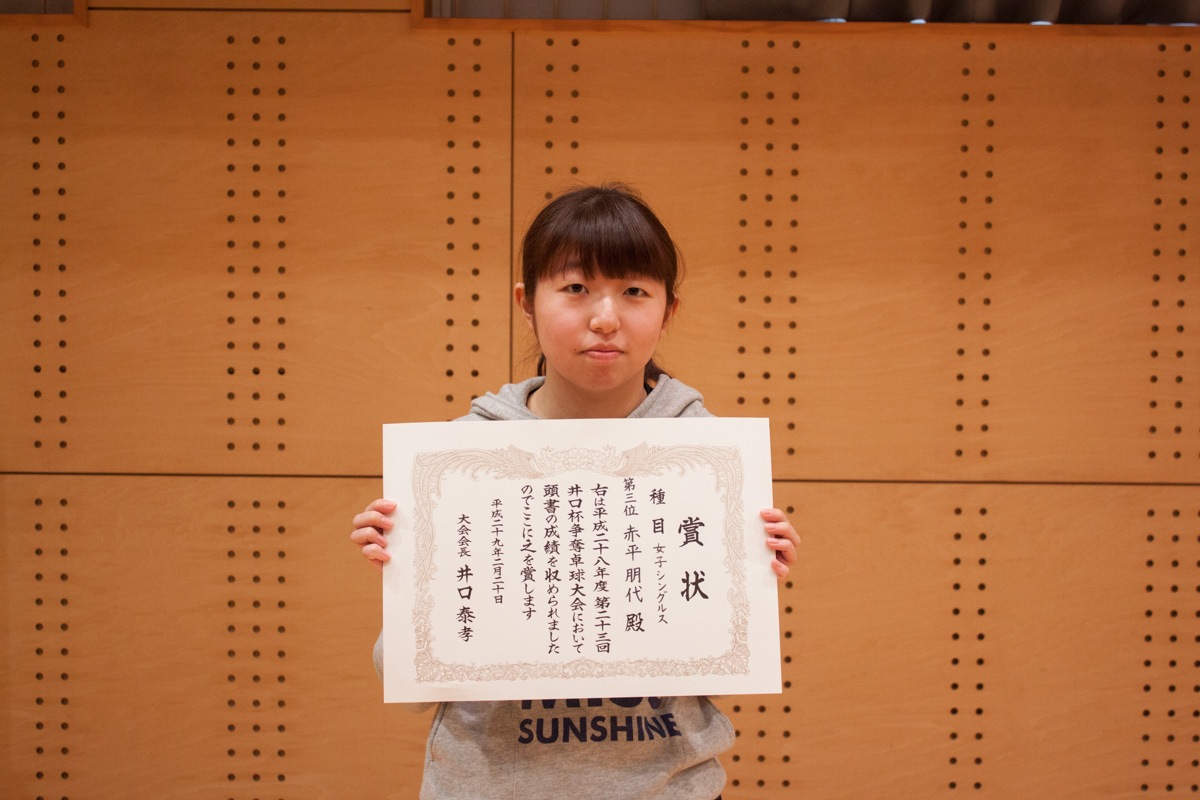 賞状
種目 女子シングルス
第三位 赤平朋代 殿
右は平成二十八年度 第二十三回
井口杯争奪卓球大会において
頭書の成績を収められました
のでここに之を賞します
平成二十九年二月二十日
大会会長 井口泰孝
SUNSHINE